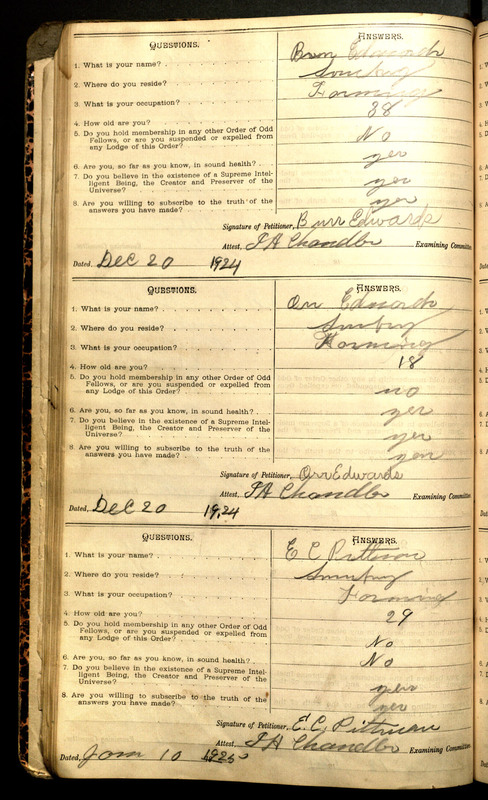 QUESTIONS. ANSWERS.
1. What is your name? Burr Edwards
2. Where do you reside?
3. What is your occupation? Farming
4. How old are you? 38
5. Do you hold membership in any other Order of Odd
Fellows, or are you suspended or expelled from
any Lodge of this Order? No
6. Are you, so far as you know, in sound health? yes
7. Do you believe in the existence of a Supreme Intel-
ligent Being, the Creator and Preserver of the
Universe? yes
8. Are you willing to subscribe to the truth of the
answers you have made? yes
Signature of Petitioner, Burr Edwards
Attest, Chandler Examining Committee
Dated, Dec 20 1924
QUESTIONS. ANSWERS.
1. What is your name? Orr Edwards
2. Where do you reside?
3. What is your occupation? Farming
4. How old are you? 18
5. Do you hold membership in any other Order of Odd
Fellows, or are you suspended or expelled from
any Lodge of this Order? no
6. Are you, so far as you know, in sound health? yes
7. Do you believe in the existence of a Supreme Intel-
ligent Being, the Creator and Preserver of the
Universe? yes
8. Are you willing to subscribe to the truth of the
answers you have made? yes
Signature of Petitioner, Orr Edwards
Attest, Chandler Examining Committee
Dated, Dec 20 1924
QUESTIONS. ANSWERS.
1. What is your name? E C Pittman
2. Where do you reside?
3. What is your occupation?
4. How old are you? 29
5. Do you hold membership in any other Order of Odd
Fellows, or are you suspended or expelled from
any Lodge of this Order? No
6. Are you, so far as you know, in sound health? No
7. Do you believe in the existence of a Supreme Intel-
ligent Being, the Creator and Preserver of the
Universe? yes
8. Are you willing to subscribe to the truth of the
answers you have made? yes
Signature of Petitioner, E. C. Pittman
Attest, Chandler Examining Committee
Dated, Jan 10 1925